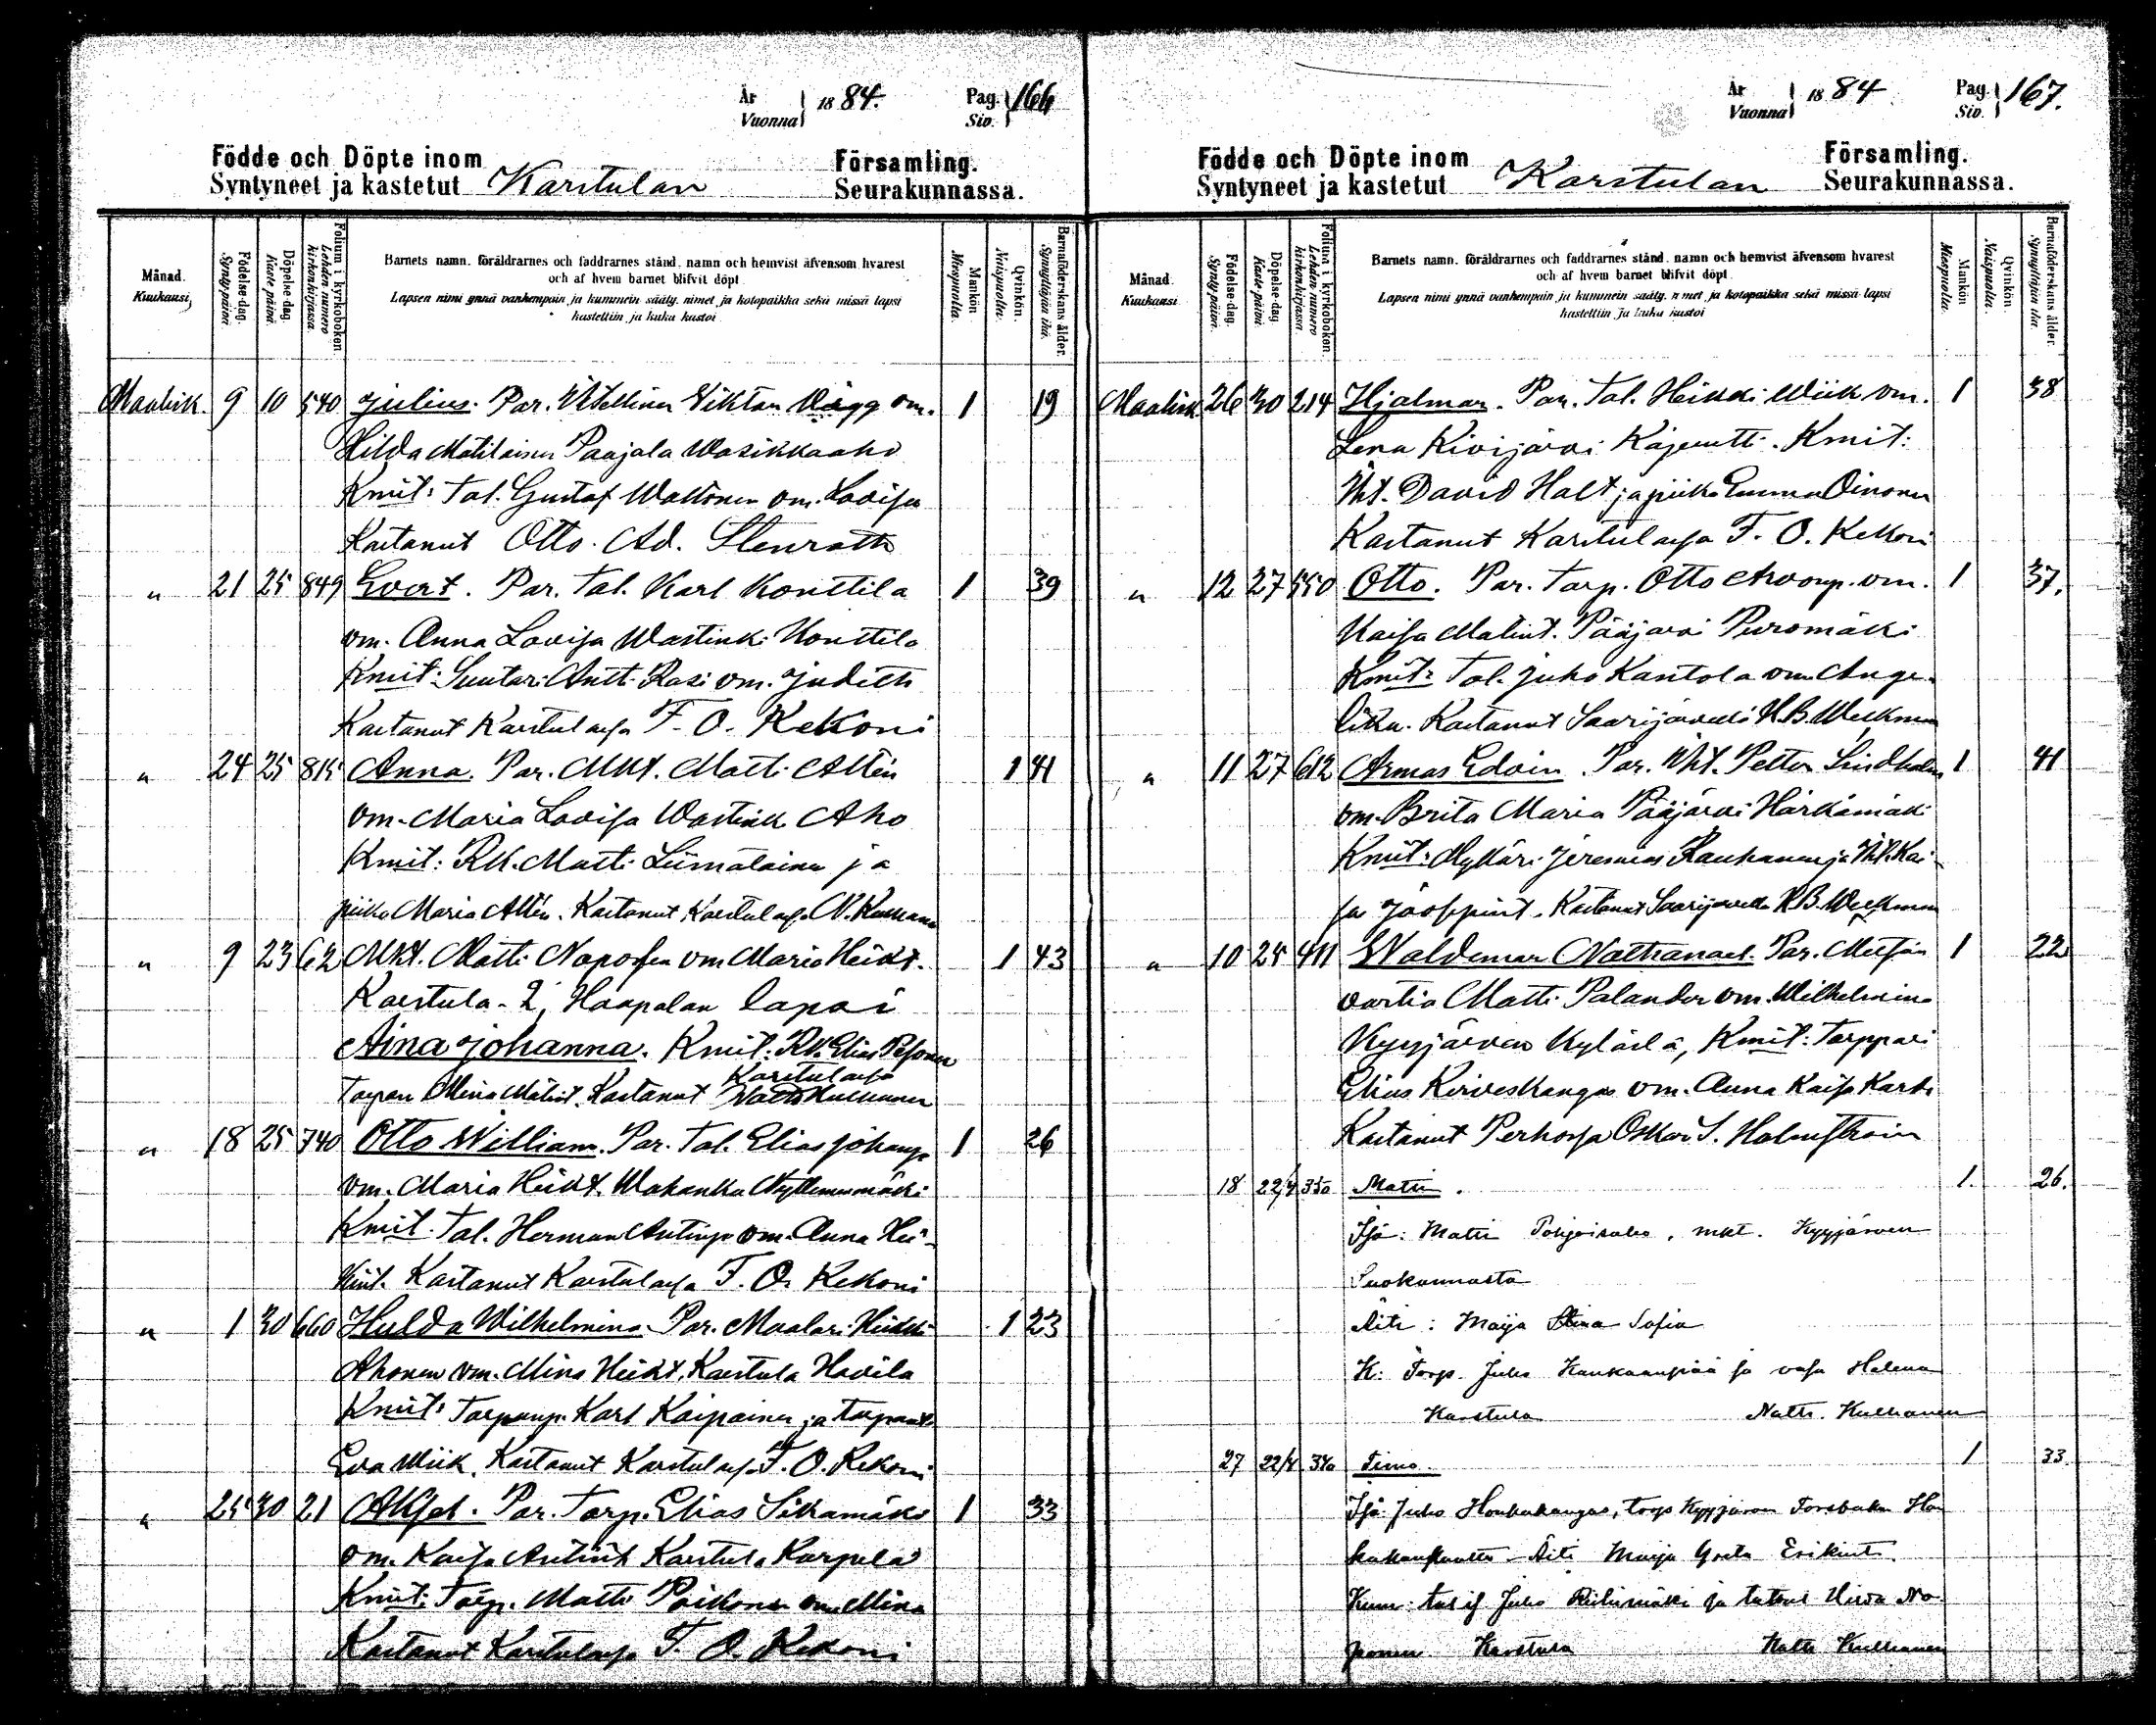 År Vuonna 1884. Pag. Siv. 166
Födde och Döpte inom Församling.
Syntyneet ja kastetut Karstulan Seurakunnassa.
Månad. Kuukausi,
Födelse-dag. Synty päivä
Döpelse-dag. Kaste päivä
Folium i kyrkoboken. Lehden numero kirkonkirjassa.
Barnets namn, föräldrarnes och faddrarnes stånd, namn och hemvist äfvensom hvarest
och af hvem barnet blifvit döpt
Lapsen nimi ynnä vanhempain ja kummein sääty, nimet ja kotopaikka sekä missä lapsi
kastettiin ja kuka kastoi
Mankön Miespuolta.
Qvinkön. Naispuolta.
Barnaföderskans ålder. Synnyttäjän ikä.
Maalisk. 9 10 540 Julius. Par. Viktan Vägg vm. 1 19
Hilda Matilainen Paajala Wasikkaaho
Kmit: Tal. Gustaf Wattonen vm. Lovisa
Kastanut Otto. Ad. Stenroth
" 21 25 849 Evert. Par. Tal. Karl Konttila 1 39
vm. Anna Lovisa Wastinki Konttila
Kmit: Suutari Antti Rasi vm. Judith
Kastanut Karstulassa F. O. Rekoni
" 24 25 815 Anna. Par. Mkt. Matti Allén 1 41
vm. Maria Lovisa Wastink Aho
Kmit: Rk. Matti Liimalainen ja
piika Maria Allén. Kastanut Karstulassa N. Kulhanen
" 9 23 62 Mkt. Matti Naposen vm Maria Heikt. 1 43
Karstula 2, Haapalan lapsi
Aina Johanna. Kmit: Rk. Elias Pesonen
Karstulassa
Torpan Mina Matint. Kastanut Natti Kulhanen
" 18 25 740 Otto William. Par. Tal. Elias Johanp. 1 26
vm. Maria Heikt. Wahanka Nyttemmäki
Kmit. Tal. Herman Antinp. vm. Anna Hei-
kint. Kastanut Karstulassa F. O. Rekoni
" 1 30 660 Hulda Wilhelmina. Par. Maalari Heikki 1 23
Ahonen vm. Mina Heikt. Karstula Havila
Kmit: Torpanp. Karl Kaipainen ja torpant.
Eva Wiik. Kastanut Karstulassa F. O. Rekoni
" 25 30 21 Aksel. Par. Torp. Elias Sikamäki 1 33
vm. Kaisa Antint. Karstula Korpela
Kmit: Torp. Matti Poikonen vm. Mina
Kastanut Karstulassa F. O. Rekoni
År Vuonna 1884 Pag. Siv. 167.
Födde och Döpte inom Församling.
Syntyneet ja kastetut Karstulan Seurakunnassa.
Månad. Kuukausi
Födelse-dag. Synty päivä.
Döpelse-dag Kaste päivä
Folium i kyrkoboken. Lehden numero kirkonkirjassa.
Barnets namn, föräldrarnes och faddrarnes stånd, namn och hemvist äfvensom hvarest
och af hvem barnet blifvit döpt.
Lapsen nimi ynnä vanhempain ja kummein sääty, nimet ja kotopaikka sekä missä lapsi
kastettiin ja kuka kastoi
Mankön Miespuolta.
Qvinkön. Naispuolta.
Barnaföderskans ålder. Synnyttäjän ikä.
Maalisk. 26 30 214 Hjalmar. Par. Tal. Heikki Wiik vm. 1 38
Lena Kivijärvi Käpentti. Kmit:
Iht. David Halt ja piika Emma Oinonen
Kastanut Karstulassa F. O. Rekoni
" 12 27 550 Otto. Par. Torp. Otto Arvonp. vm. 1 37.
Kaisa Matint. Pääjärvi Puromäki
Kmit: Tal. Juho Kantola vm. Ange-
lika. Kastanut Saarijärvellä K. B. Weckman
" 11 27 612 Armas Edvin. Par. Iht. Petter Lindholm 1 41
vm. Brita Maria Pääjärvi Härkämäki
Kmit: Mylläri Jeremias Rauhanen ja Iht. Kai-
sa Joosppint. Kastanut Saarijärvellä K. B. Weckman
" 10 25 411 Waldemar Nathanael. Par. Metsän 1 22
vartia Matti Palander vm. Wilhelmina
Kyyjärven kylästä, Kmit: Torppari
Elias Kirveskangas vm. Anna Kaisa Karst.
Kastanut Perhossa Oskar S. Holmström
18 22/4 350 Matti. 1. 26.
Isä: Matti Pohjoisaho, mkt. Kyyjärven
Suokannasta
Äiti: Maija Stina Sofia
K: Torp. Juho Kaukaanpää ja vaja Helena
Karstula Natti. Kulhanen
27 22/4 340 Timo. 1 33
Isä: Juho Honkakangas, torp Kyyjärven Hon
kakankaalta Äiti Maija Greta Erikint.
Kum: tal is. Juho Riihimäki ja Na-
ponen Karstula Natti Kulhanen